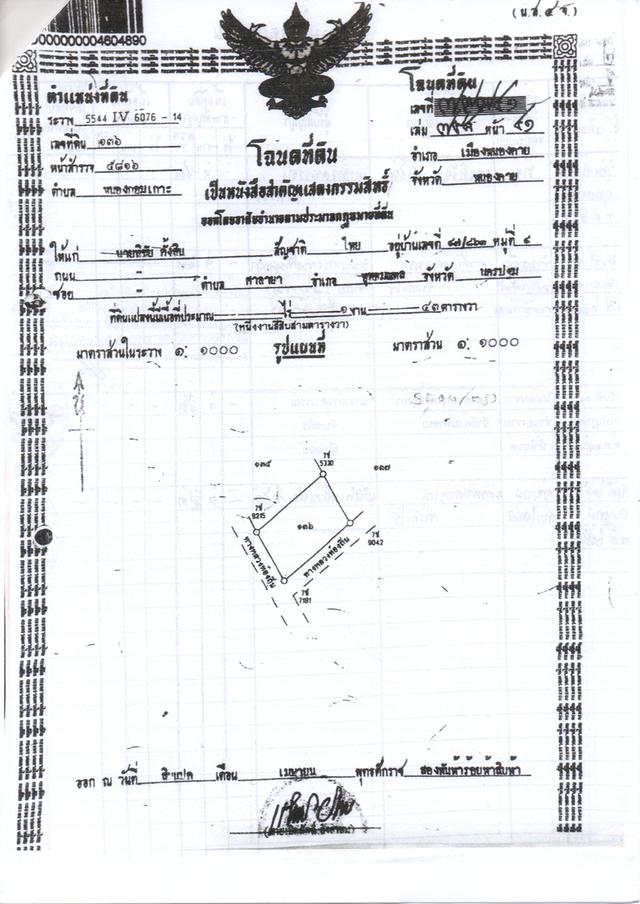 (น.ส.๔ จ.)
0000000004604890
ตำแหน่งที่ดิน
ระวาง 5544 IV 6076 - 14
เลขที่ดิน ๑๓๖
หน้าสำรวจ ๕๘๑๖
ตำบล หนองกอมเกาะ
โฉนดที่ดิน
เลขที่
เล่ม หน้า ๕๑
อำเภอ เมืองหนองคาย
จังหวัด หนองคาย
โฉนดที่ดิน
เป็นหนังสือสำคัญแสดงกรรมสิทธิ์
ออกโดยอาศัยอำนาจตามประมวลกฎหมายที่ดิน
ให้แก่ สัญชาติ ไทย อยู่บ้านเลขที่ หมู่ที่ ๕
ถนน -
ซอย - ตำบล ศาลายา อำเภอ พุทธมณฑล จังหวัด นครปฐม
ที่ดินแปลงนี้มีเนื้อที่ประมาณ - ไร่ ๑ งาน ๔๓ ตารางวา
(หนึ่งงานสี่สิบสามตารางวา)
มาตราส่วนในระวาง ๑: ๑๐๐๐ รูปแผนที่ มาตราส่วน ๑: ๑๐๐๐
๑๓๕
๑๓๗
5330
๑๓๖
9215
9042
ทางหลวงท้องถิ่น
ทางหลวงท้องถิ่น
7181
ออก ณ วันที่ สิบเอ็ด เดือน เมษายน พุทธศักราช สองพันห้าร้อยห้าสิบห้า